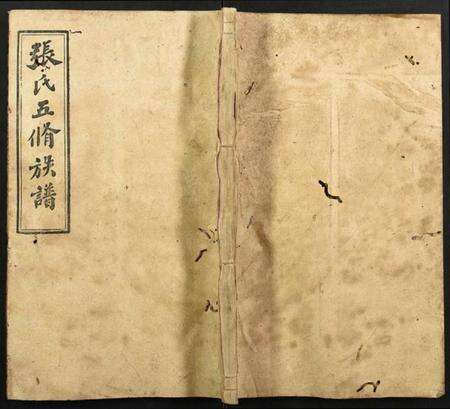 張氏五脩族譜